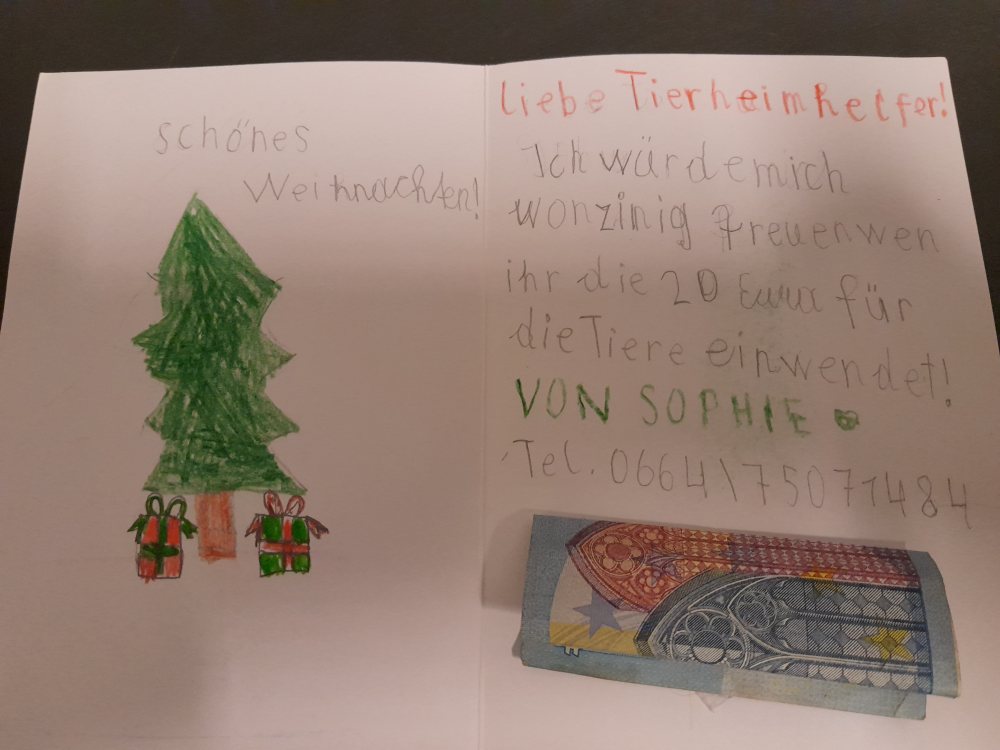 schönes
Weihnachten!
Liebe Tierheimhelfer!
Ich würde mich
wonzinig freuen wen
ihr die 20 Euro für
die Tiere einwendet!
VON SOPHIE
Tel. 0664\75071484